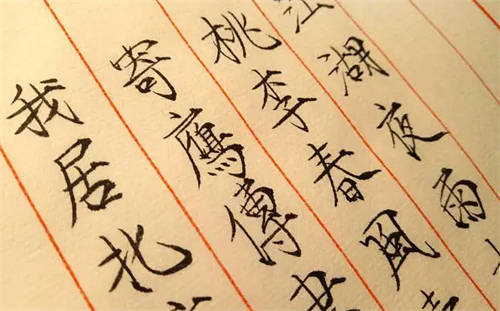 我居北
寄鴈傳
桃李春風
江湖夜雨